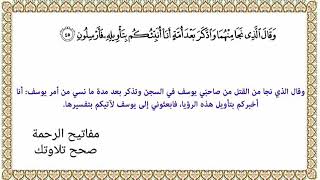 وَقَالَ ٱلَّذِى نَجَا مِنْهُمَا وَٱدَّكَرَ بَعْدَ أُمَّةٍ أَنَا۠ أُنَبِّئُكُم بِتَأْوِيلِهِۦ فَأَرْسِلُونِ ٤٥
وقال الذي نجا من القتل من صاحبَي يوسف في السجن وتذكر بعد مدة ما نسي من أمر يوسف: أنا
أخبركم بتأويل هذه الرؤيا، فابعثوني إلى يوسف لآتيكم بتفسيرها.
مفاتيح الرحمة
صحح تلاوتك